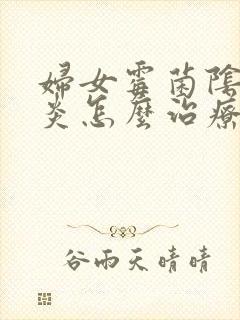 婦女霉菌陰
炎怎麼治療
谷雨天晴晴